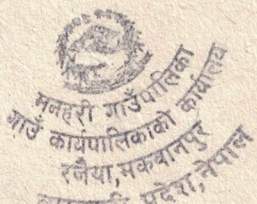 मनहरी गाउँपालिका
गाउँ कार्यपालिकाको कार्यालय
रजैया, मकवानपुर
प्रदेश, नेपाल